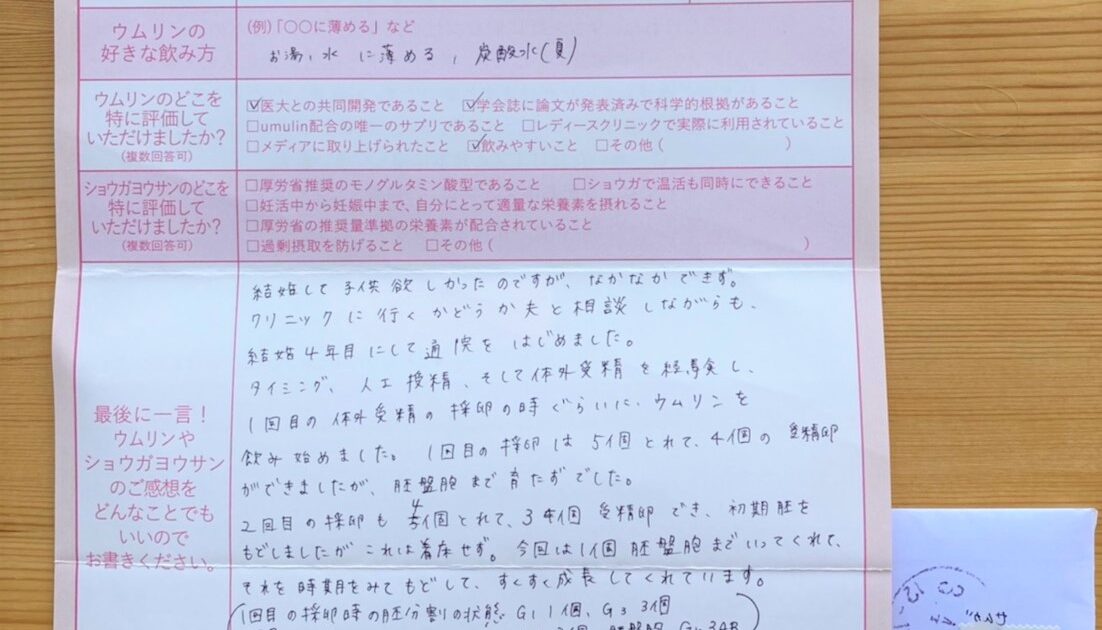 ウムリンの
好きな飲み方
(例)「〇〇に薄める」など
お湯、水 に薄める, 炭酸水(夏)
ウムリンのどこを
特に評価して
いただけましたか?
(複数回答可)
☑医大との共同開発であること ☑学会誌に論文が発表済みで科学的根拠があること
□umulin配合の唯一のサプリであること □レディースクリニックで実際に利用されていること
□メディアに取り上げられたこと ☑飲みやすいこと □その他 ( )
ショウガヨウサンのどこを
特に評価して
いただけましたか?
(複数回答可)
□厚労省推奨のモノグルタミン酸型であること □ショウガで温活も同時にできること
□妊活中から妊娠中まで、自分にとって適量な栄養素を摂れること
□厚労省の推奨量準拠の栄養素が配合されていること
□過剰摂取を防げること □その他 ( )
最後に一言!
ウムリンや
ショウガヨウサン
のご感想を
どんなことでも
いいので
お書きください。
結婚して子供欲しかったのですが、なかなかできず。
クリニックに行くかどうか夫と相談しながらも、
結婚4年目にして通院をはじめました。
タイミング、人工授精、そして体外受精を経験し、
1回目の体外受精の採卵の時ぐらいに、ウムリンを
飲み始めました。1回目の採卵は5個とれて、4個の受精卵
ができましたが、胚盤胞まで育たずでした。
2回目の採卵も4個とれて、3個受精卵でき、初期胚を
もどしましたがこれは着床せず。今回は1個胚盤胞までいってくれて、
それを時期をみてもどして、すくすく成長してくれています。
(1回目の採卵時の胚分割の状態 G1 1個、G3 3個